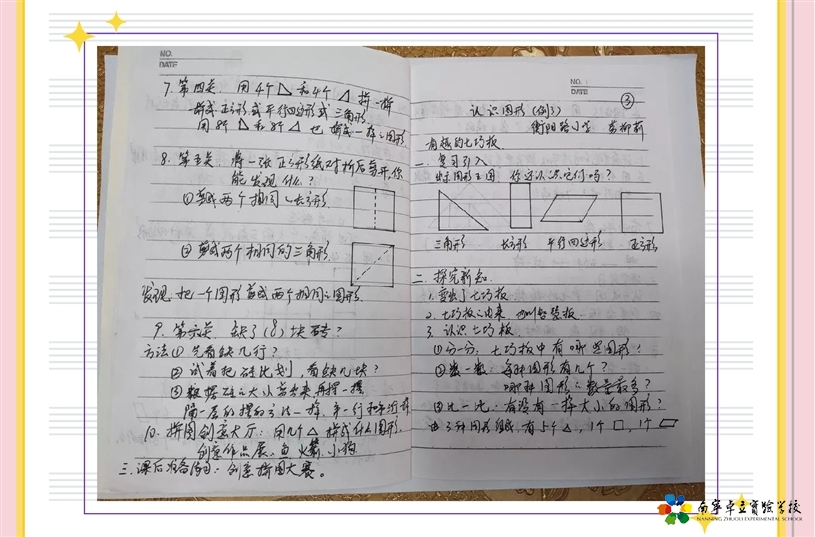 NO.
DATE
7. 第四关. 用4个◺和4个△拼一拼
拼成正方形或平行四边形或三角形
用8个◺和8个△也拼成一样的图形
8. 第五关. 将一张正方形纸对折后剪开,你
能发现什么?
①剪成两个相同的长方形
②剪成两个相同的三角形
发现: 把一个图形剪成两个相同的图形.
9. 第六关. 缺了(8)块砖?
方法① 先看缺几行?
② 试着把砖比划, 看缺几块?
③ 数据砖的大小剪出来再摆一摆
隔一层的摆的方法一样, 第一行和第三行
10. 拼图创意大示: 用几个△拼成什么图形.
创意作品展. 鱼 火箭 小狗
三. 课后准备活动: 创意拼图大赛。
NO.
DATE
③
认识图形 (例3)
衡阳路小学
有趣的七巧板
一. 复习引入
出示图形王国 你还认识它们吗?
三角形 长方形 平行四边形 正方形
二. 探究新知.
1. 变出了七巧板.
2. 七巧板的由来
3. 认识七巧板
①分一分: 七巧板中有哪些图形?
②数一数: 每种图形有几个?
哪种图形的数量最多?
③比一比: 有没有一样大小的图形?
由3种图形组成, 有5个△, 1个□, 1个▱
南宁卓立实验学校
NANNING ZHUOLI EXPERIMENTAL SCHOOL